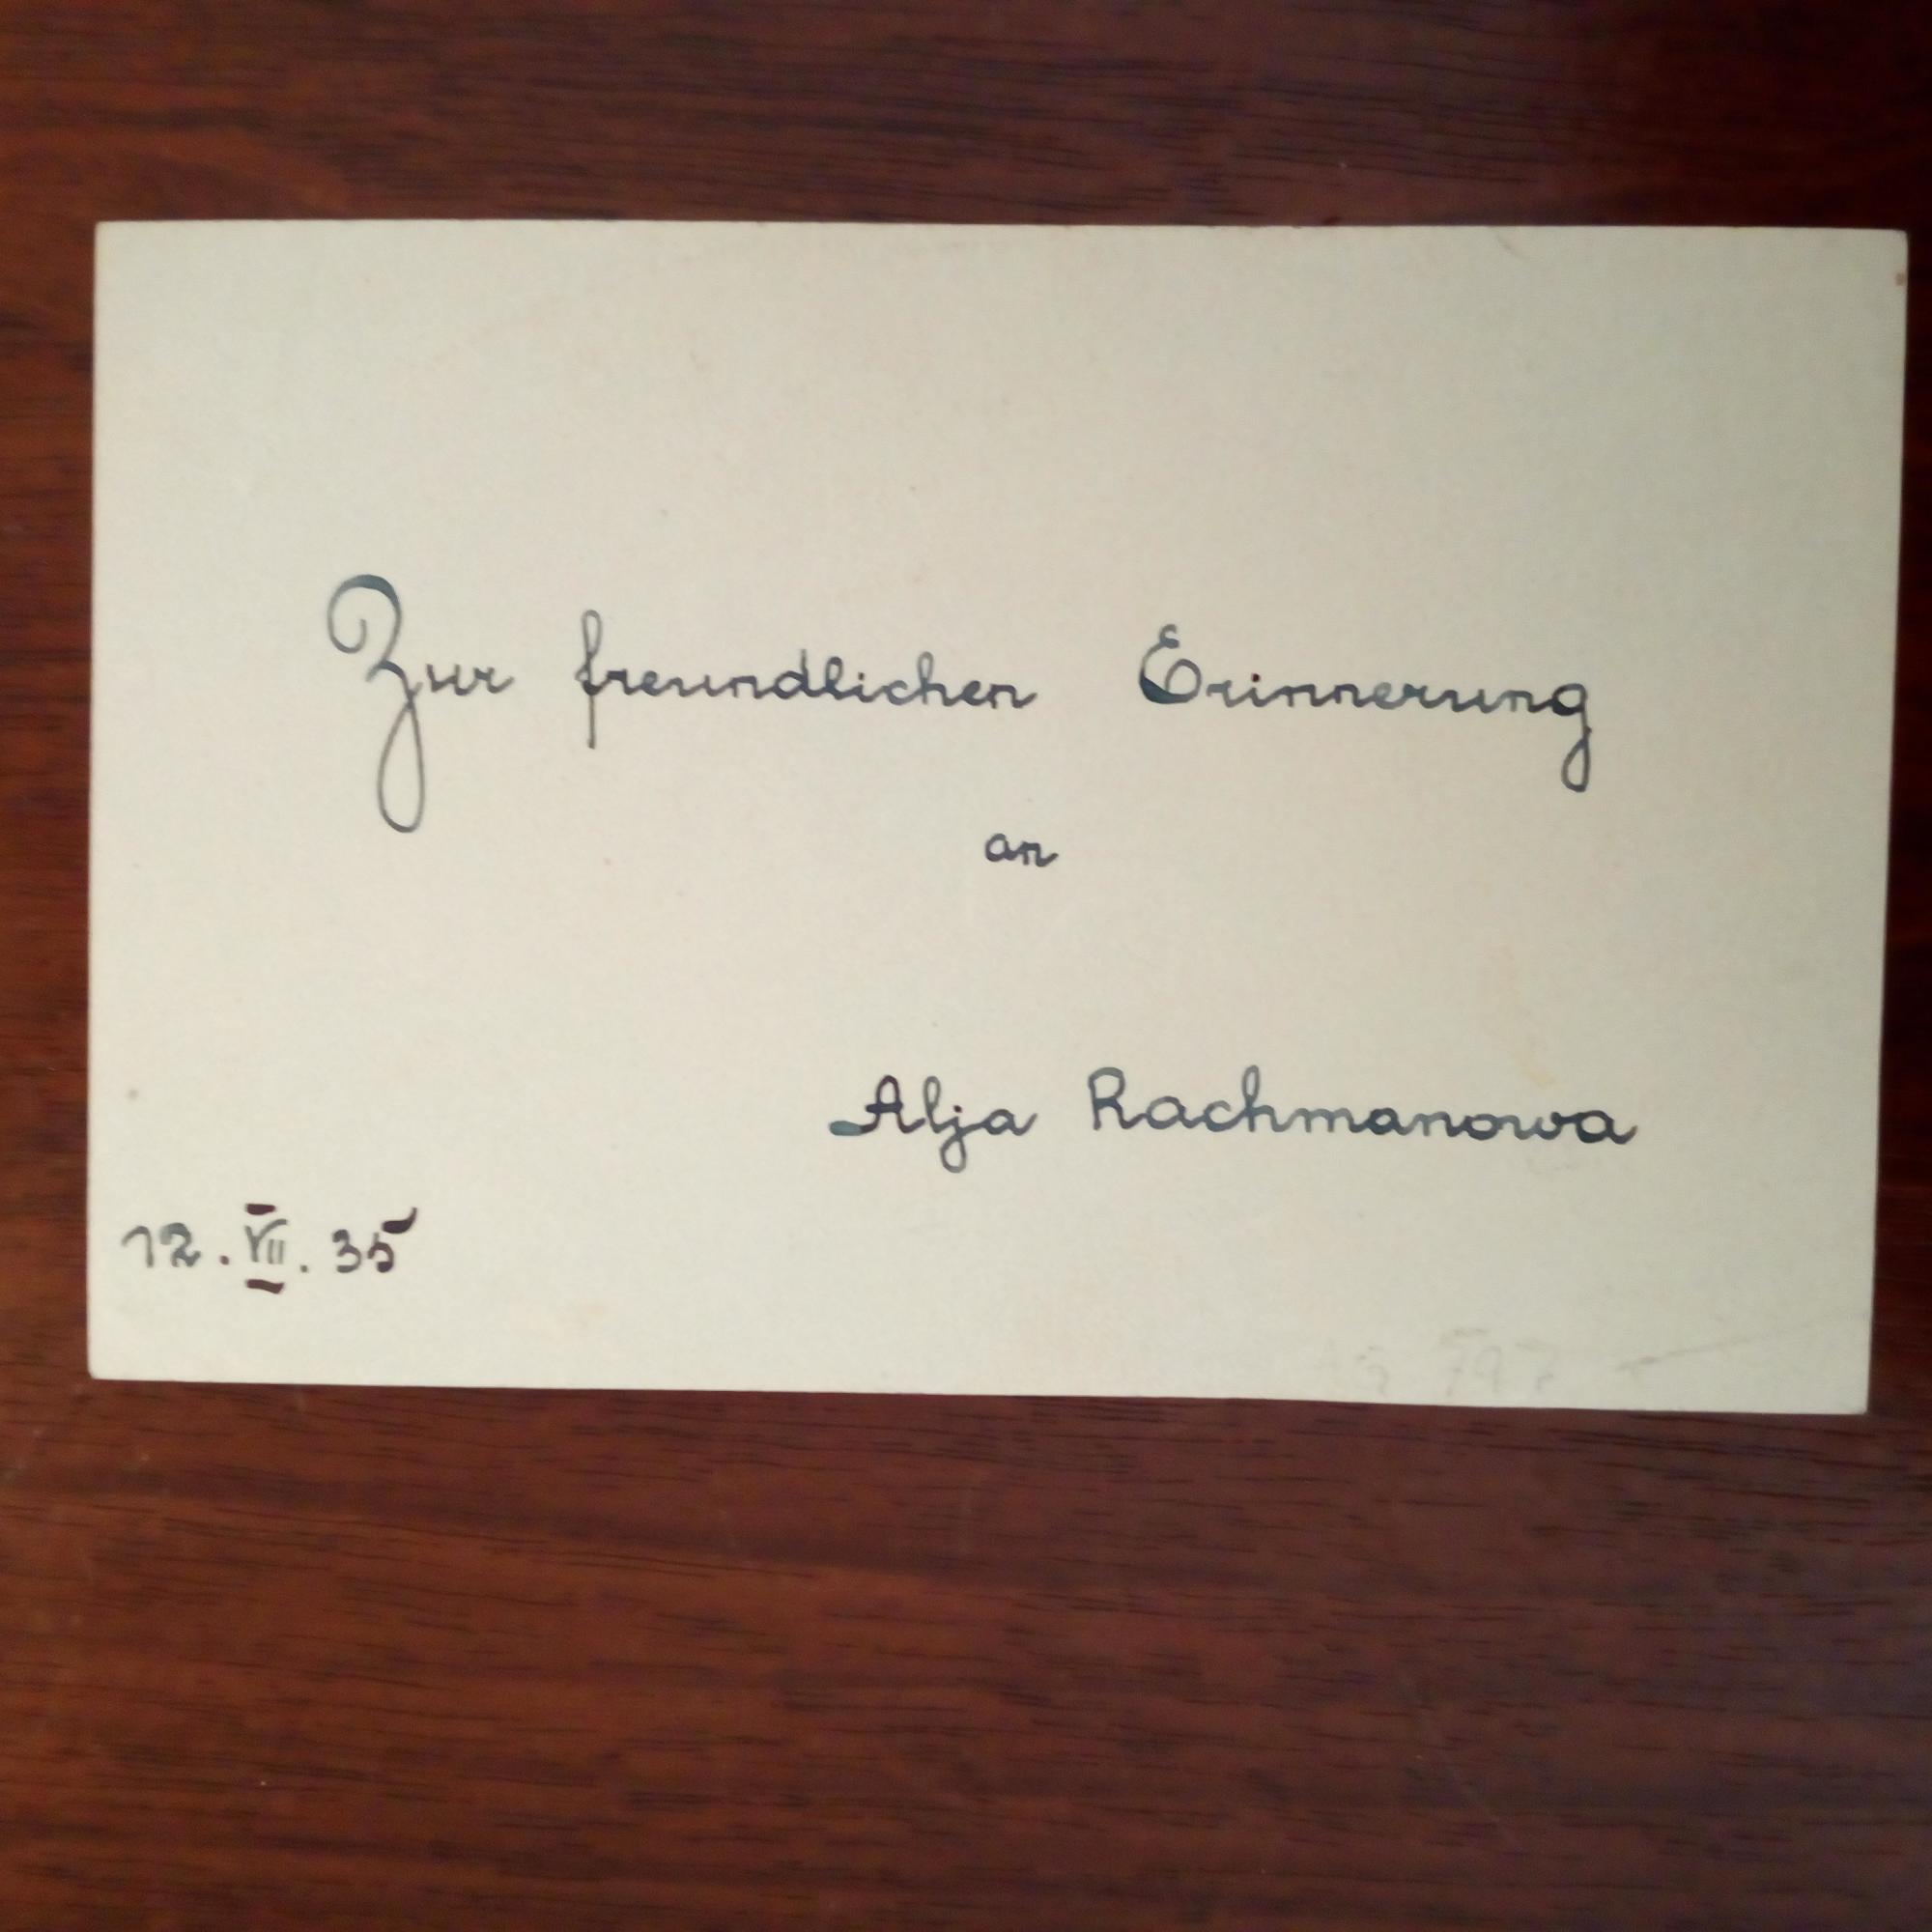 Zur freundlichen Erinnerung
an
Alja Rachmanowa
12. VII. 35